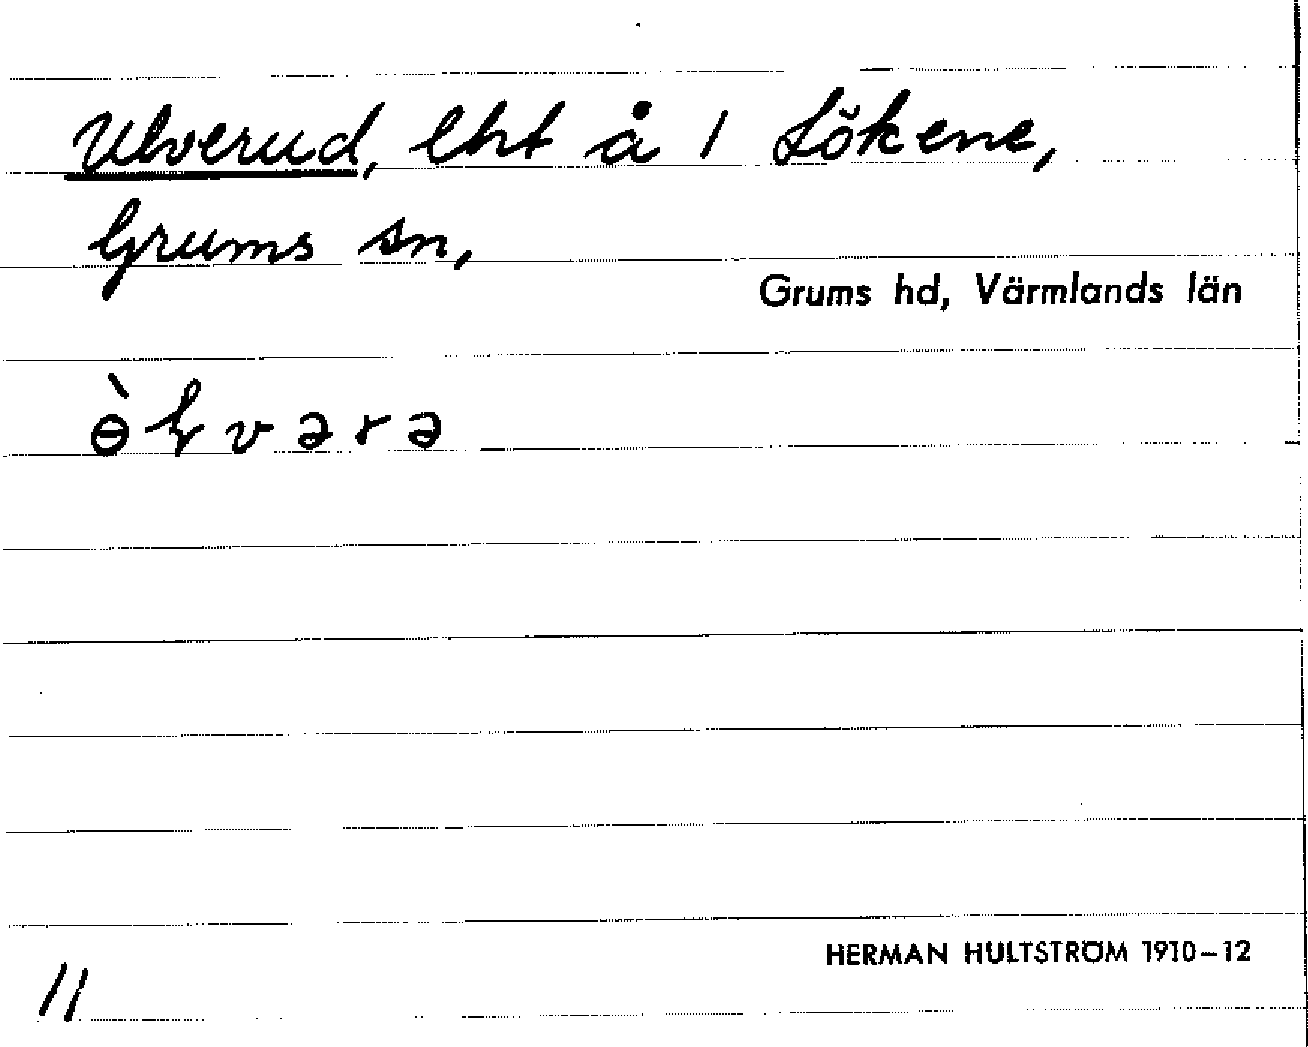 Ulverud, lht å 1 Lökene,
Grums sn,
Grums hd, Värmlands län
HERMAN HULTSTRÖM 1910–12
11